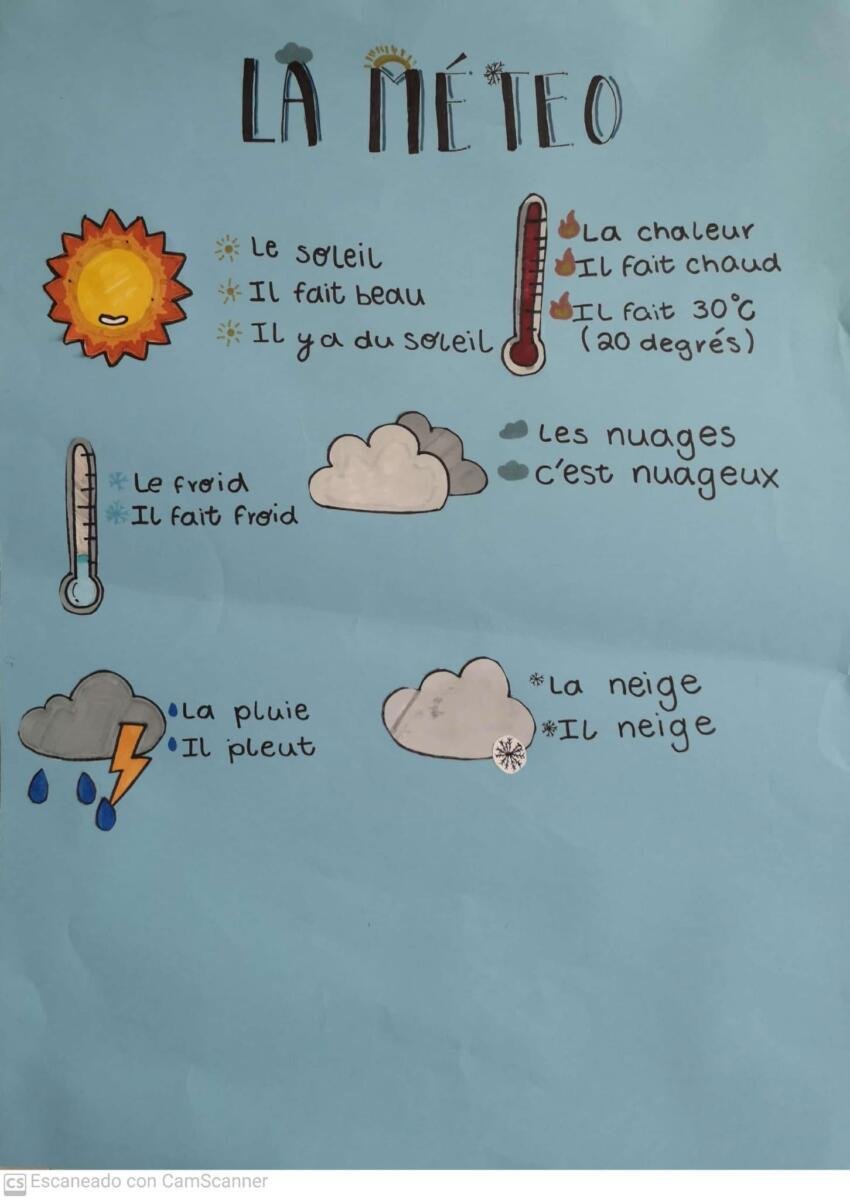 LA MÉTEO
Le soleil
Il fait beau
Il y a du soleil
La chaleur
Il fait chaud
Il fait 30°C
(20 degrés)
Le froid
Il fait froid
Les nuages
c'est nuageux
La pluie
Il pleut
La neige
Il neige
CS Escaneado con CamScanner